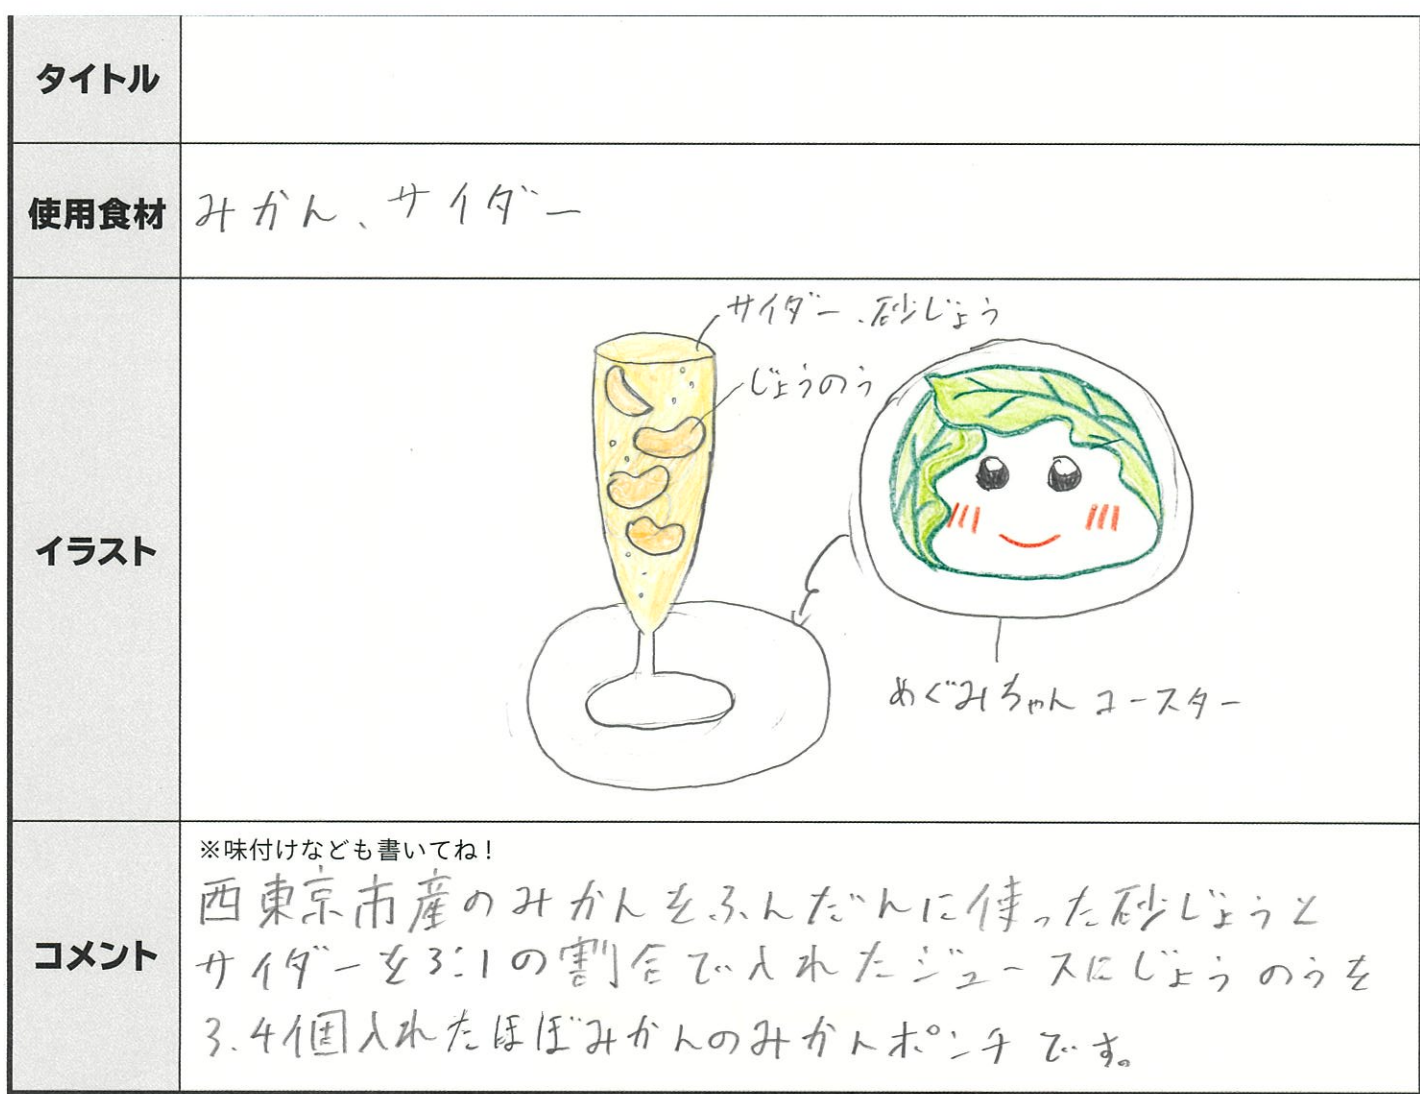 タイトル
使用食材
みかん、サイダー
イラスト
サイダー、砂じょう
じょうのう
めぐみちゃんコースター
コメント
※味付けなども書いてね！
西東京市産のみかんをふんだんに使った砂じょうと
サイダーを3:1の割合で入れたジュースにじょうのうを
3.4個入れたほぼみかんのみかんポンチです。